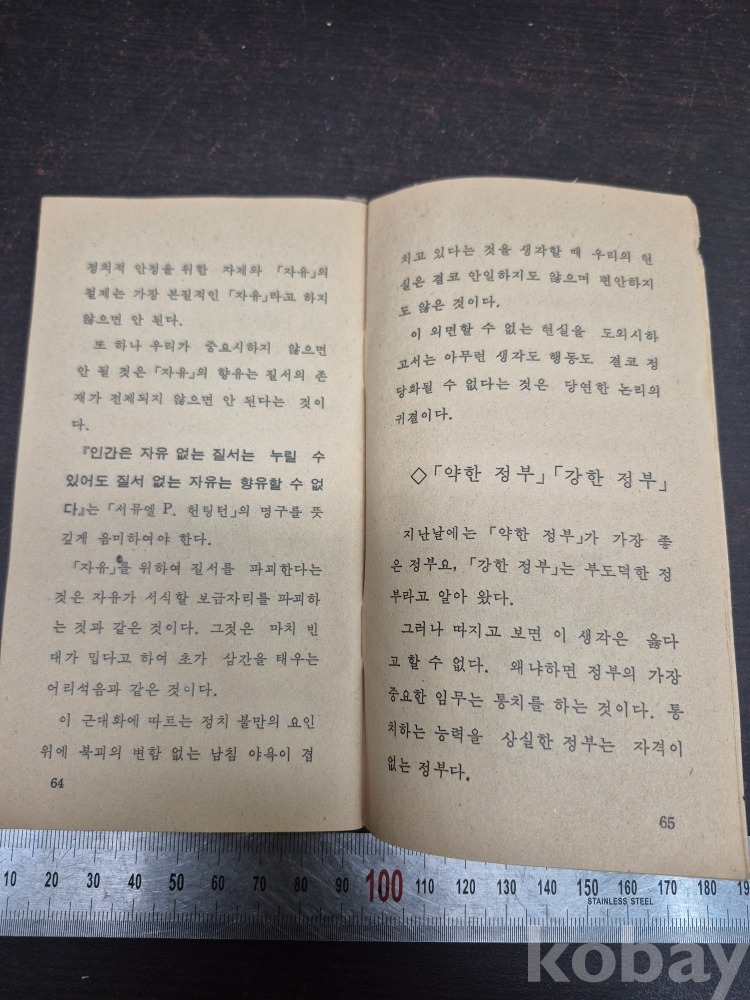 정치적 안정을 위한 자제와 「자유」의
절제는 가장 본질적인 「자유」라고 하지
않으면 안 된다.
또 하나 우리가 중요시하지 않으면
안 될 것은 「자유」의 향유는 질서의 존
재가 전제되지 않으면 안 된다는 것이
다.
『인간은 자유 없는 질서는 누릴 수
있어도 질서 없는 자유는 향유할 수 없
다』는 「서뮤엘 P. 헌팅턴」의 명구를 뜻
깊게 음미하여야 한다.
「자유」를 위하여 질서를 파괴한다는
것은 자유가 서식할 보금자리를 파괴하
는 것과 같은 것이다. 그것은 마치 빈
대가 밉다고 하여 초가 삼간을 태우는
어리석음과 같은 것이다.
이 근대화에 따르는 정치 불만의 요인
위에 북괴의 변함 없는 남침 야욕이 겹
64
치고 있다는 것을 생각할 때 우리의 현
실은 결코 안일하지도 않으며 편안하지
도 않은 것이다.
이 외면할 수 없는 현실을 도외시하
고서는 아무런 생각도 행동도 결코 정
당화될 수 없다는 것은 당연한 논리의
귀결이다.
◇「약한 정부」「강한 정부」
지난날에는 「약한 정부」가 가장 좋
은 정부요, 「강한 정부」는 부도덕한 정
부라고 알아 왔다.
그러나 따지고 보면 이 생각은 옳다
고 할 수 없다. 왜냐하면 정부의 가장
중요한 임무는 통치를 하는 것이다. 통
치하는 능력을 상실한 정부는 자격이
없는 정부다.
65
10 20 30 40 50 60 70 80 90 100 110 120 130 140 150 160 170 180 19
STAINLESS STEEL
kobay